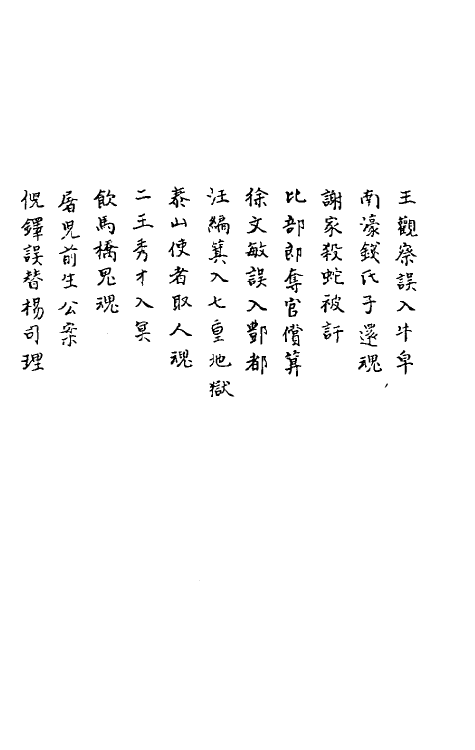 王觀察誤入牛皁
南濠錢氏子還魂
謝家殺蛇被訐
比部郎奪官償算
徐文敏誤入酆都
汪編簊入七重地獄
泰山使者取人魂
二王秀才入冥
飲馬橋鬼魂
屠兒前生公案
倪鐸誤替楊司理